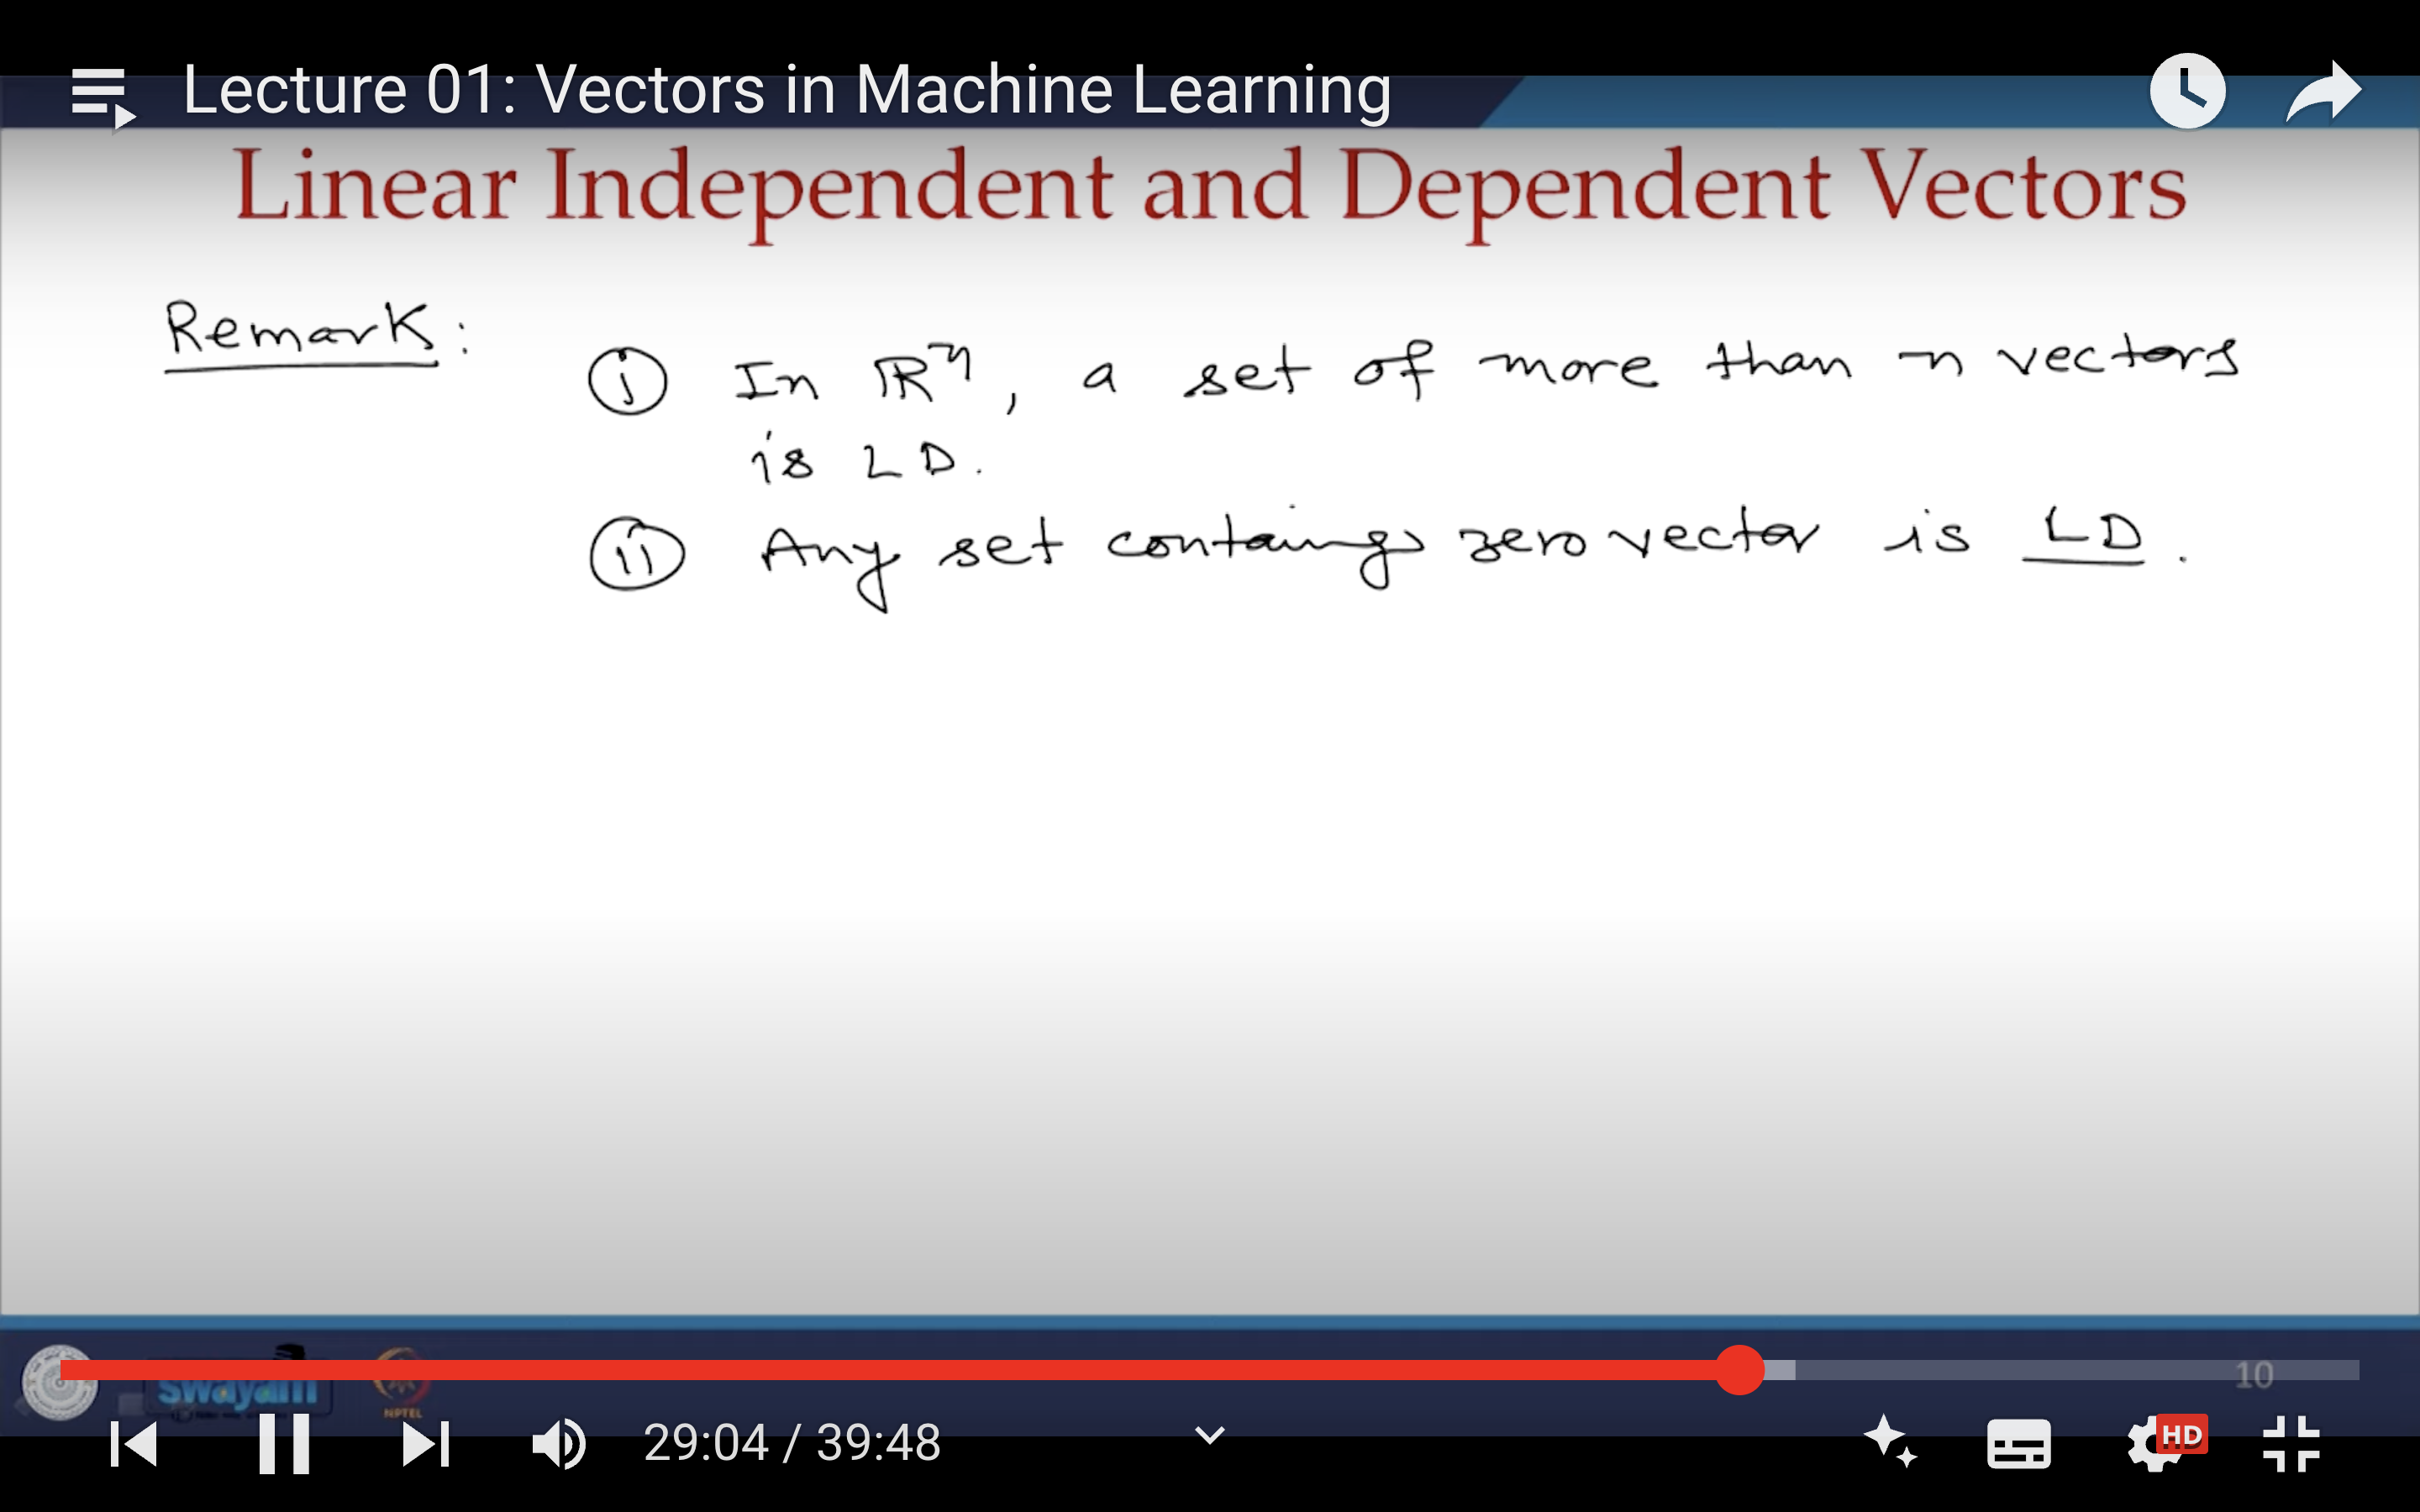 Lecture 01: Vectors in Machine Learning
Linear Independent and Dependent Vectors
Remark:
(i) In ℝⁿ, a set of more than n vectors
is LD.
(ii) Any set contaings zero vector is LD.
swayam
NPTEL
10
29:04 / 39:48
HD